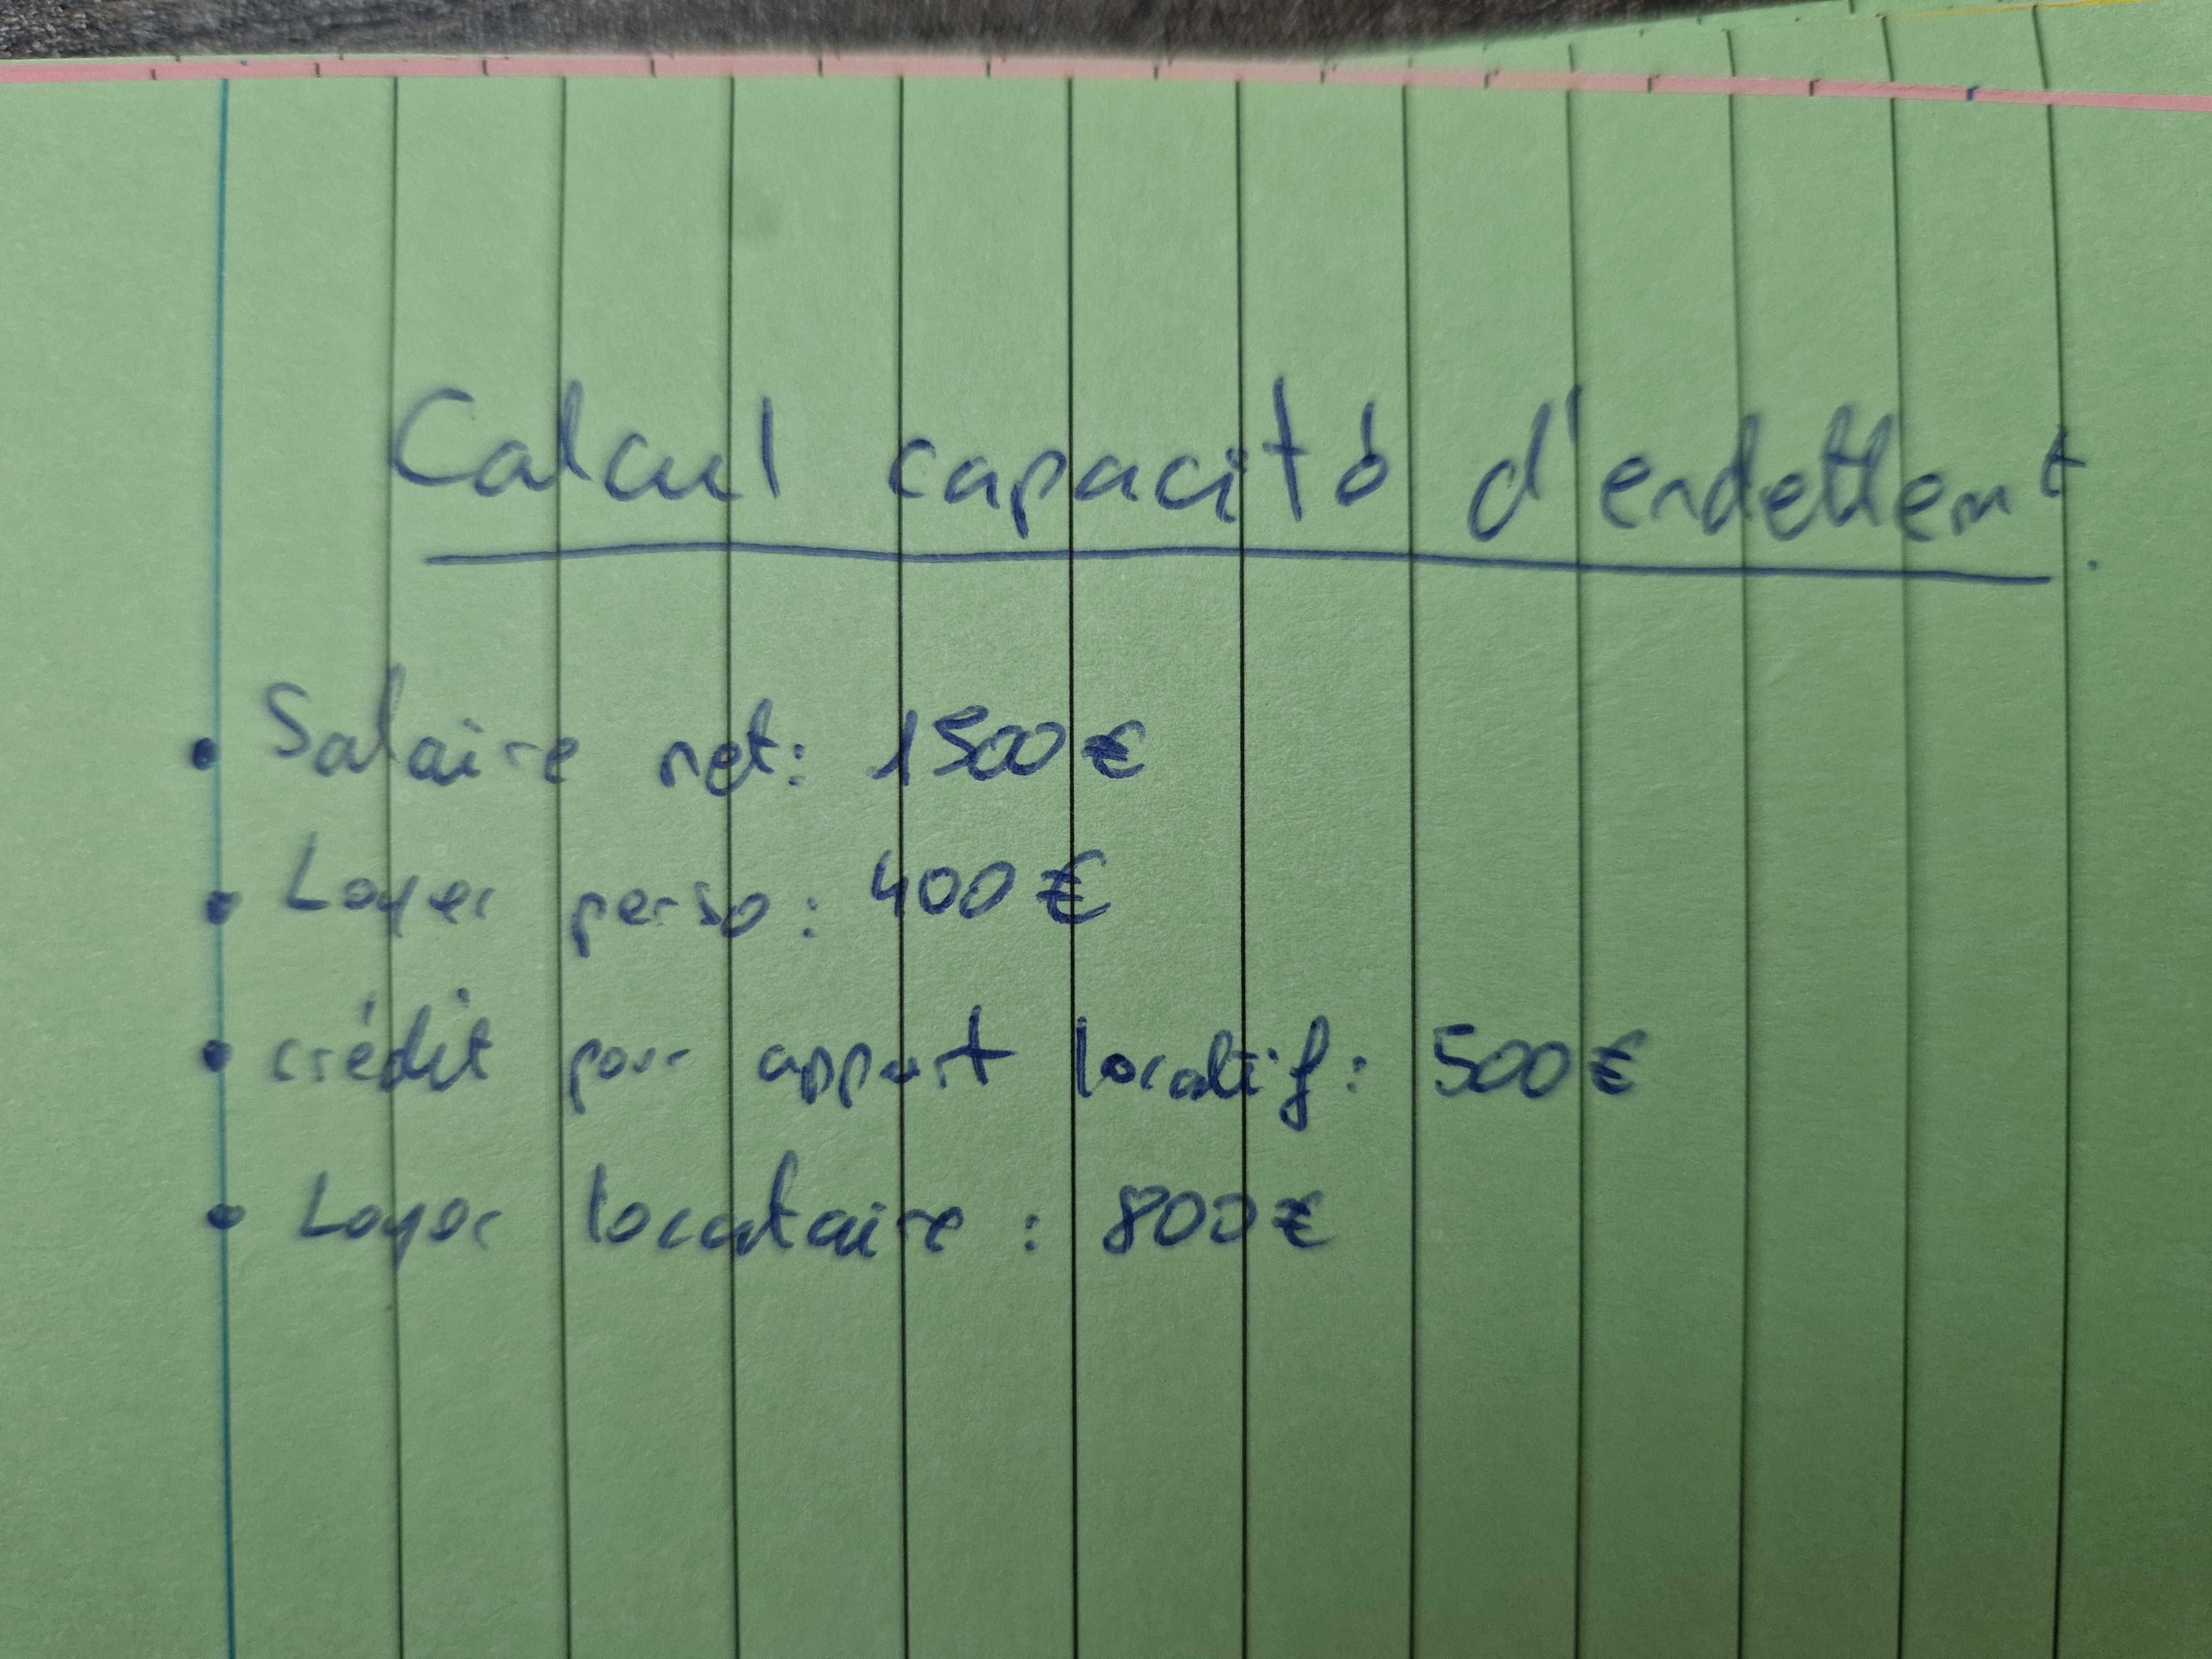 Calcul capacité d'endettement
• Salaire net: 1500€
• Loyer perso: 400€
• crédit pour appart locatif: 500€
• Loyer locataire: 800€